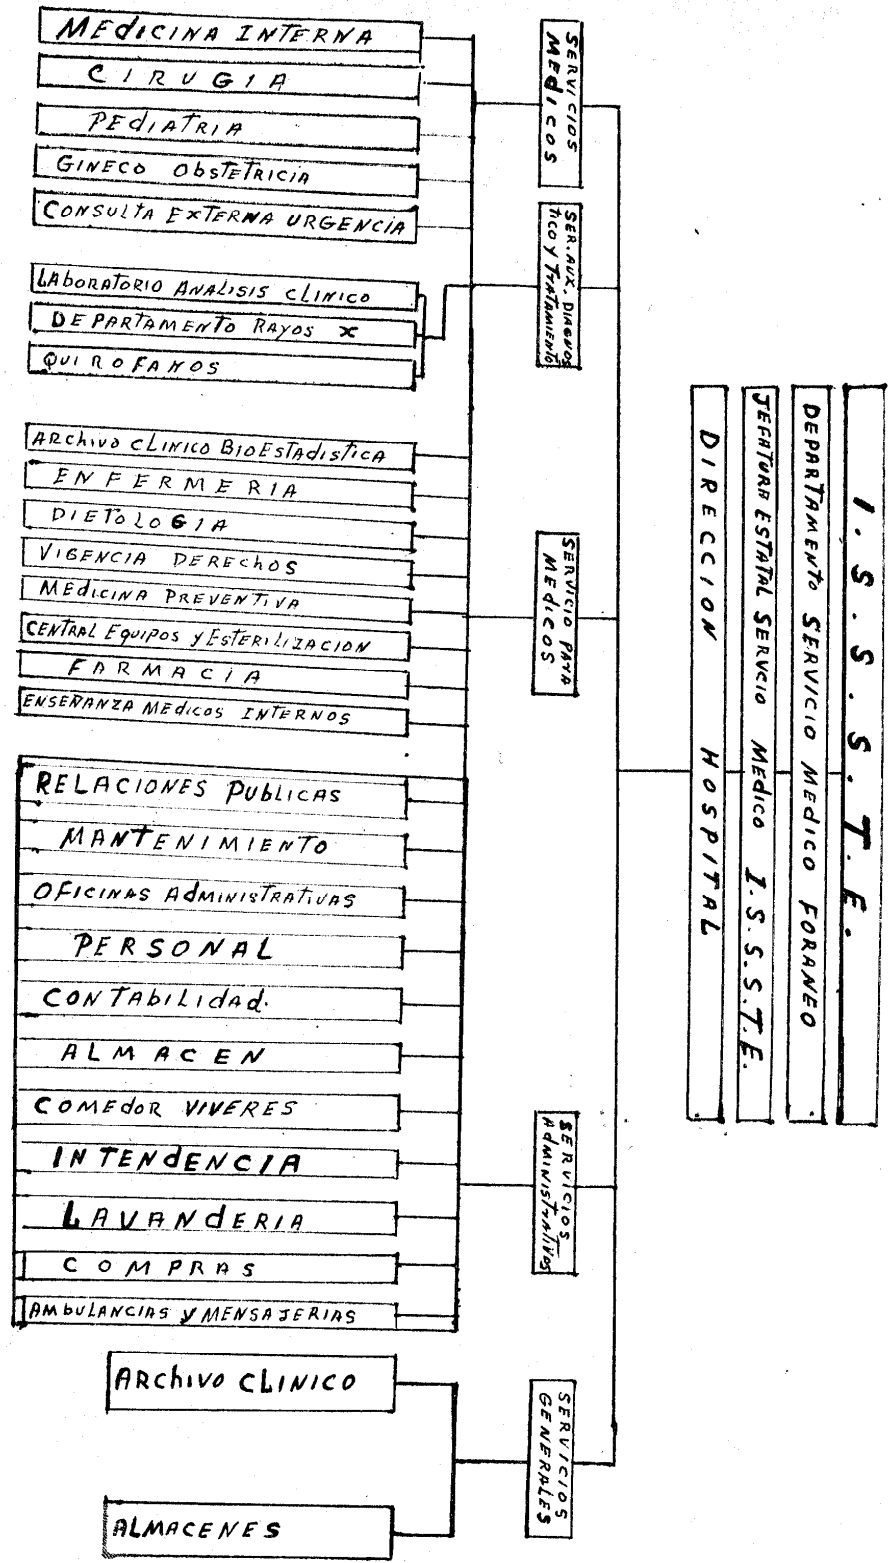 I. S. S. S. T. E.
DEPARTAMENTO SERVICIO MEDICO FORANEO
JEFATURA ESTATAL SERVCIO MEDICO I. S. S. S. T. E.
DIRECCION HOSPITAL
SERVICIOS
MEDICOS
MEDICINA INTERNA
CIRUGIA
PEDIATRIA
GINECO ObsTETRICIA
CONSULTA EXTERNA URGENCIA
SER. AUX. DIAGNOS
TICO Y TRATAMIENTO
LABORATORIO ANALISIS CLINICO
DEPARTAMENTO RAYOS X
QUIROFANOS
SERVICIO PARA
MEDICOS
ARChivo CLINICO BIOESTADISTICA
ENFERMERIA
DIETOLOGIA
VIGENCIA DERECHOS
MEDICINA PREVENTIVA
CENTRAL EQUIPOS y ESTERILIZACION
FARMACIA
ENSEÑANZA MEDICOS INTERNOS
SERVICIOS
AdMINISTRATIVOS
RELACIONES PUBLICAS
MANTENIMIENTO
OFICINAS AdMINISTRATIVAS
PERSONAL
CONTAbILIdAd.
ALMACEN
COMEdOR VIVERES
INTENdENCIA
LAVANdERIA
COMPRAS
AMbULANCIAS y MENSAJERIAS
SERVICIOS
GENERALES
ARChIVO CLINICO
ALMACENES